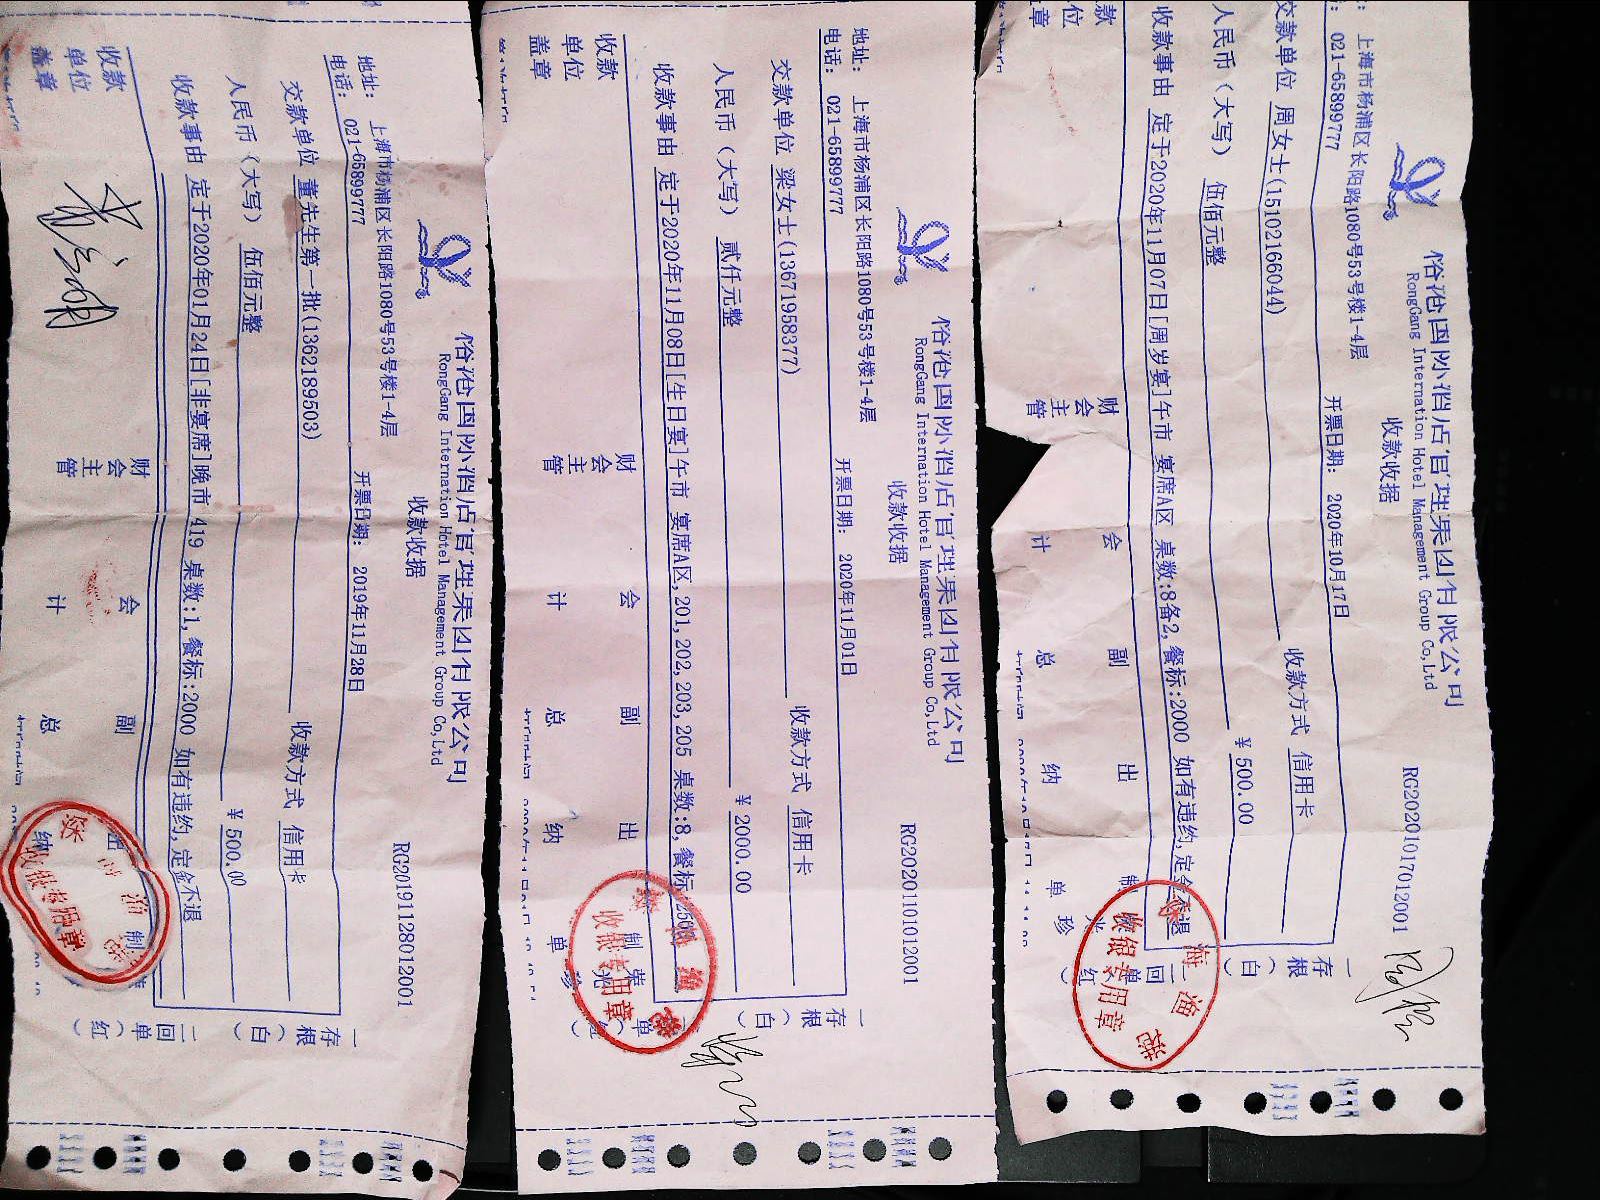 俗沧国际酒店管理集团有限公司
RongGang Internation Hotel Management Group Co,Ltd
收款收据
RG20191128012001
地址: 上海市杨浦区长阳路1080号53号楼1-4层
电话: 021-65899777
开票日期: 2019年11月28日
交款单位 董先生第一批(1362189503)
收款方式 信用卡
人民币(大写) 伍佰元整
¥ 500.00
收款事由 定于2020年01月24日[非宴席]晚市 419 桌数:1,餐标:2000 如有违约,定金不退
收款单位盖章
财会主管
会计
副总
出纳
制
一存根(白)
二回单(红)
收银专用章
俗沧国际酒店管理集团有限公司
RongGang Internation Hotel Management Group Co,Ltd
收款收据
RG20201101012001
地址: 上海市杨浦区长阳路1080号53号楼1-4层
电话: 021-65899777
开票日期: 2020年11月01日
交款单位 梁女士(13671958377)
收款方式 信用卡
人民币(大写) 贰仟元整
¥ 2000.00
收款事由 定于2020年11月08日[生日宴]午市 宴席A区,201,202,203,205 桌数:8,餐标:2500
收款单位盖章
财会主管
会计
副总
出纳
制单
荣光珍
一存根(白)
收银专用章
俗沧国际酒店管理集团有限公司
RongGang Internation Hotel Management Group Co,Ltd
收款收据
RG20201017012001
: 上海市杨浦区长阳路1080号53号楼1-4层
: 021-65899777
开票日期: 2020年10月17日
交款单位 周女士(15102166044)
收款方式 信用卡
人民币(大写) 伍佰元整
¥ 500.00
收款事由 定于2020年11月07日[周岁宴]午市 宴席A区 桌数:8备2,餐标:2000 如有违约,定金不退
款位章
财会主管
会计
副总
出纳
制单
光珍
一存根(白)
二回单(红)
海渔港
收银专用章